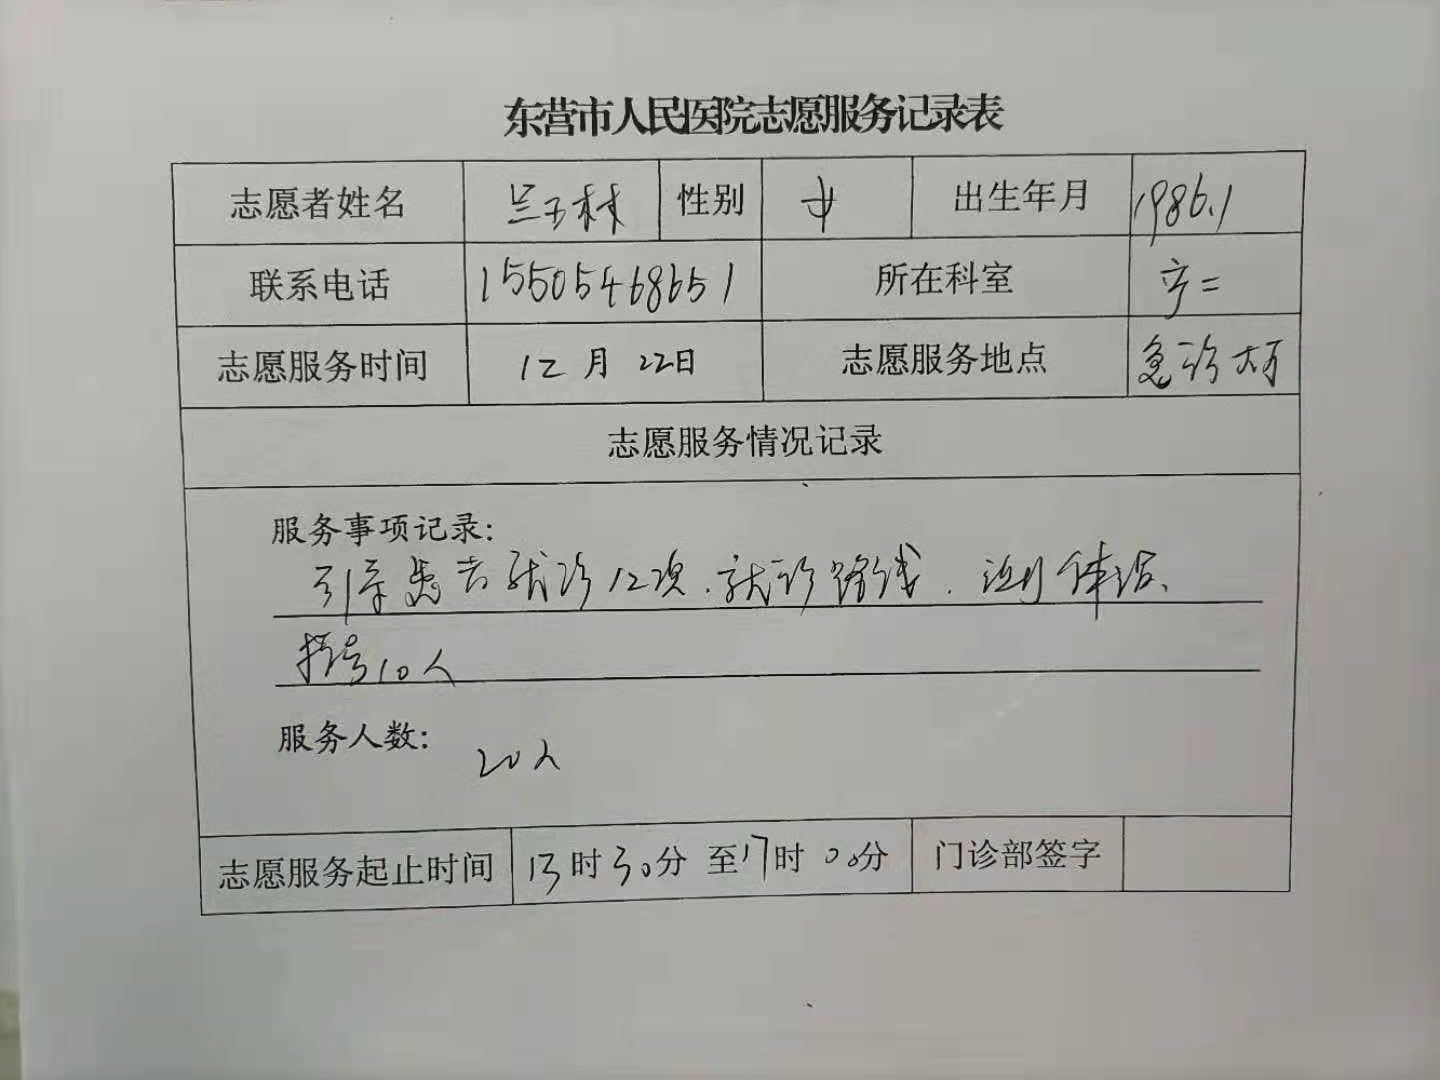 东营市人民医院志愿服务记录表
志愿者姓名 兰玉林 性别 女 出生年月 1986.1
联系电话 15505468651 所在科室 产二
志愿服务时间 12月22日 志愿服务地点 急诊大厅
志愿服务情况记录
服务事项记录:
引导患者就诊12次.就诊路线.测体温、
挂号10人
服务人数: 20人
志愿服务起止时间 13时30分 至17时00分 门诊部签字